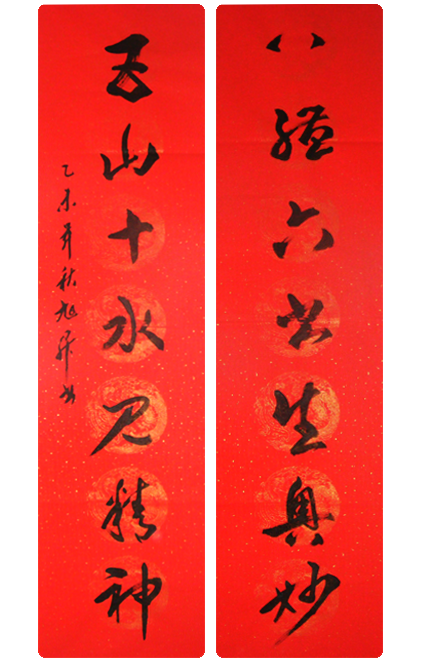 八體六书生奥妙
五山十水见精神
乙未年秋旭升书